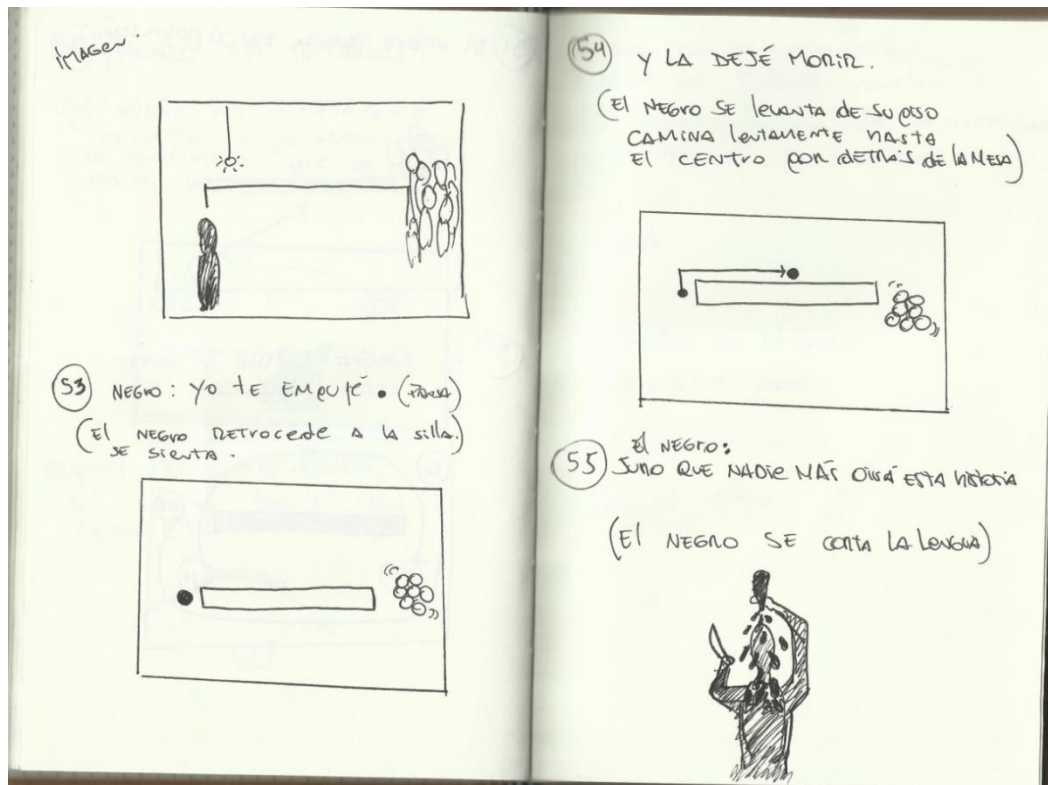 IMAGEN.
53 NEGRO: YO TE EMPUJÉ. (PAUSA)
(EL NEGRO RETROCEDE A LA SILLA.
SE SIENTA.
54 Y LA DEJÉ MORIR.
(EL NEGRO SE LEVANTA DE SU
CAMINA LENTAMENTE HASTA
EL CENTRO POR DETRÁS DE LA MESA)
EL NEGRO:
55 JURO QUE NADIE MÁS OIRÁ ESTA HISTORIA
(EL NEGRO SE CORTA LA LENGUA)